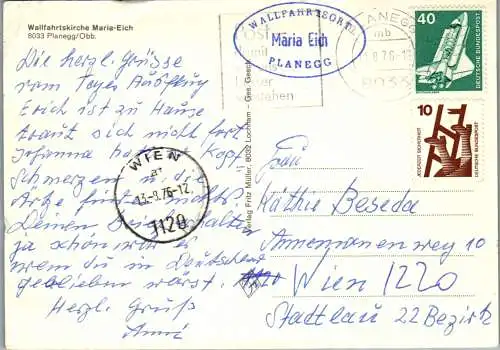 Wallfahrtskirche Maria-Eich
8033 Planegg/Obb.
Die herzl. Grüsse
vom Tages Ausflug
Erich ist zu Hause
traut sich nicht fort
Johanna hat Kopf
Schmerzen die
Ärzte finden nichts?
Deinen Brief erhalten
ja schön wär es
wenn du in Deutschland
geblieben wärst.
Herzl. Gruß
Anni
WIEN
13.-8.76-12
1120
Verlag Fritz Müller, 8032 Lochham - Ges. Gesch.
WALLFAHRTSORT
Maria Eich
PLANEGG
PLANEGG
mb
8.76-
8033
40
DEUTSCHE BUNDESPOST
10
JEDERZEIT SICHERHEIT
DEUTSCHE BUNDESPOST
Frau
Käthie Beseda
Annemonenweg 10
Wien 1220
Stadtlau 22 Bezirk